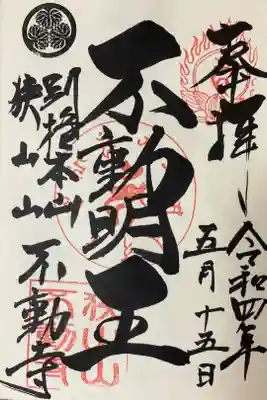 奉拝 令和四年
五月十五日
不動明王
別格本山
狭山山
不動寺